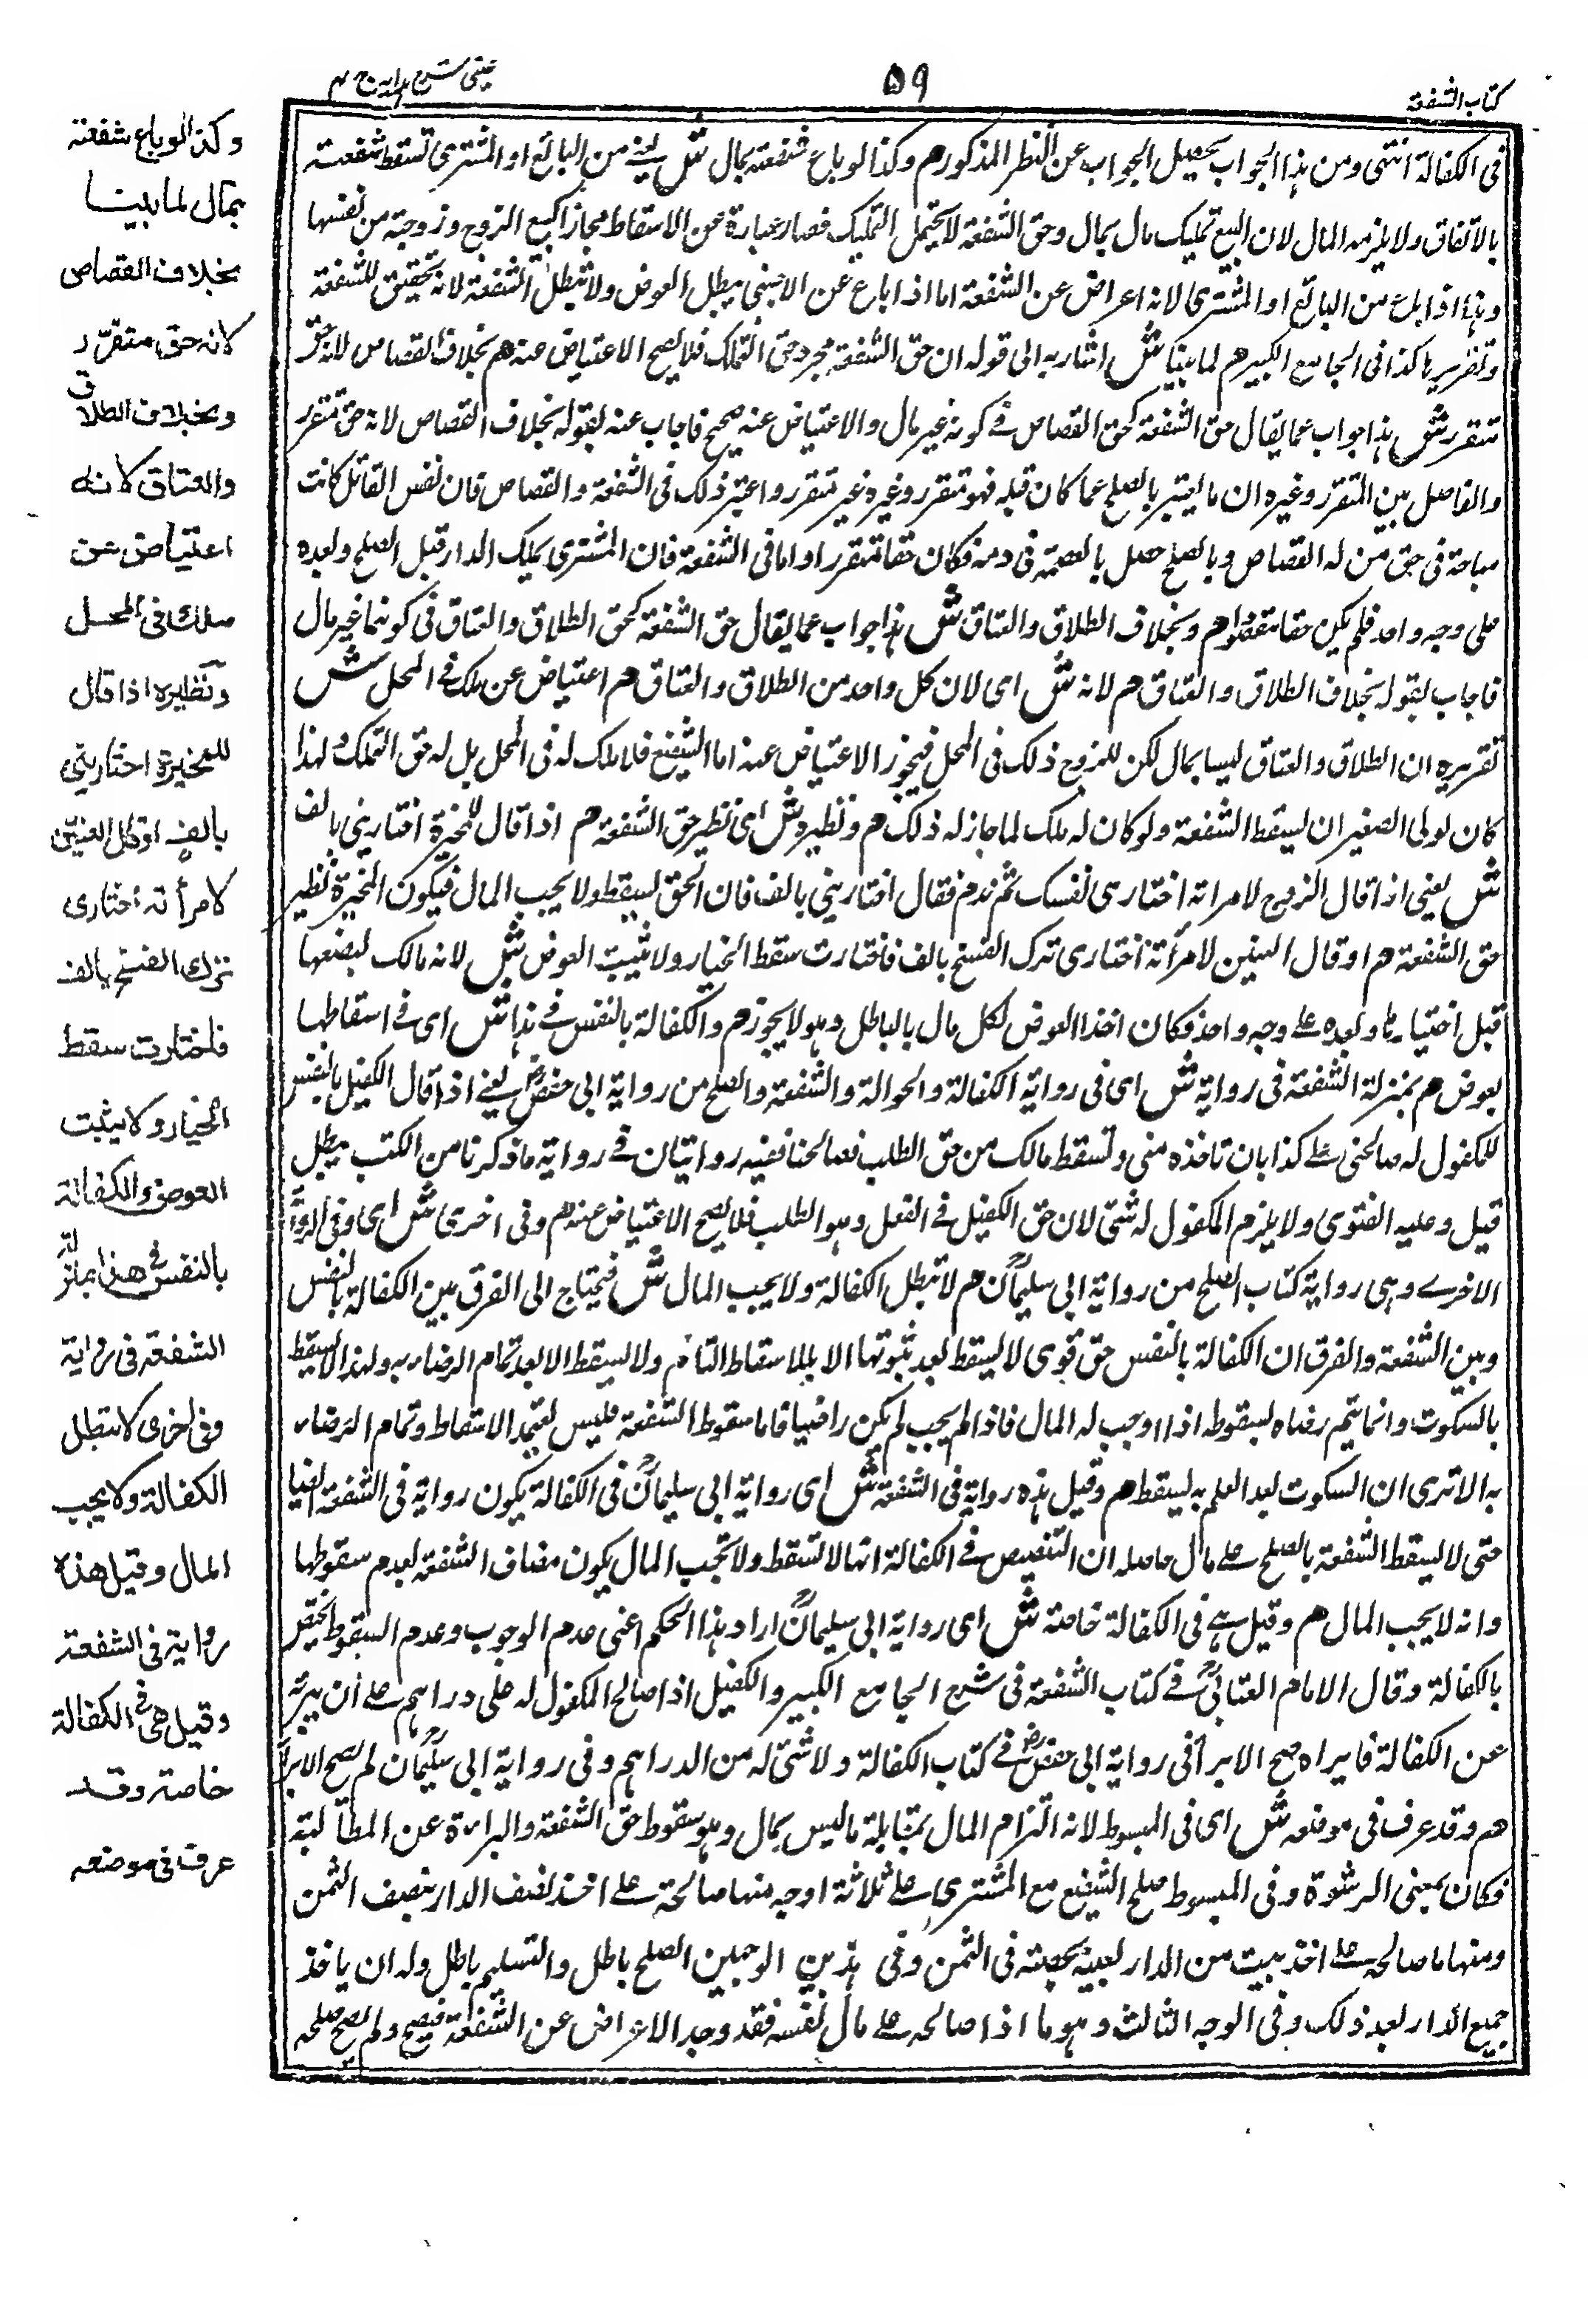 كتاب الشفعة
٥٩
عينى شرح هداية ج ٣
فى الكفالة انتهى ومن هذا الجواب يحصل الجواب عن النظر المذكور هم وكذا لو باع شفعته بمال ش يعنى من البائع او المشترى تسقط شفعته
بالاتفاق ولا يلزمه المال لان البيع تمليك مال بمال وحق الشفعة لا يحتمل التمليك فصار عبارة عن الاسقاط مجازا كبيع الزوج وزوجته من نفسها
وهذا اذا باع من البائع او المشترى لانه اعراض عن الشفعة اما اذا باع عن الاجنبى يبطل العوض ولا تبطل الشفعة لانه تحقيق للشفعة
وتقريرها كذا فى الجامع الكبير هم لما بينا ش اشار به الى قوله ان حق الشفعة مجرد حق التملك فلا يصح الاعتياض عنه هم بخلاف القصاص لانه حق
متقرر ش هذا جواب عما يقال حق الشفعة كحق القصاص فے كونه غير مال والاعتياض عنه صحيح فاجاب عنه بقوله بخلاف القصاص لانه حق متقرر
والفاصل بين المتقرر وغيره ان ما يتغير بالصلح عما كان قبله فهو متقرر وغيره غير متقرر واعتبر ذلك فى الشفعة والقصاص فان نفس القاتل كانت
مباحة فى حق من له القصاص وبالصلح حصل بالعصمة فى دمه فكان حقا متقررا واما فى الشفعة فان المشترى يملك الدار قبل الصلح وبعده
على وجه واحد فلم يكن حقا متقررا هم وبخلاف الطلاق والعتاق ش هذا جواب عما يقال حق الشفعة كحق الطلاق والعتاق فى كونهما غير مال
فاجاب بقوله بخلاف الطلاق والعتاق هم لانه ش اى لان كل واحد من الطلاق والعتاق هم اعتياض عن ملك فے المحل ش
تقريره ان الطلاق والعتاق ليسا بمال لكن للزوج ذلك فى المحل فيجوز الاعتياض عنه اما الشفيع فلا ملك له فى المحل بل له حق التملك ولهذا
كان لولى الصغير ان يسقط الشفعة ولو كان له ملك لما جاز له ذلك هم ونظيره ش اى نظير حق الشفعة هم اذا قال للمخيرة اختارينى بالف
ش يعنى اذا قال الزوج لامرأته اختارى نفسك ثم ندم فقال اختارينى بالف فان الحق يسقط ولا يجب المال فيكون المخيرة نظير
حق الشفعة هم او قال العنين لامرأته اختارى ترك الفسخ بالف فاختارت سقط الخيار ولا يثبت العوض ش لانه مالك لبضعها
قبل اختيارها وبعده علے وجه واحد فكان اخذ العوض لكل مال بالباطل وهو لا يجوز هم والكفالة بالنفس فے هذا ش اى فے اسقاطها
بعوض هم بمنزلة الشفعة فى رواية ش اى فى رواية الكفالة والحوالة والشفعة والصلح من رواية ابى حفص يعنے اذا قال الكفيل بالنفس
للمكفول له صالحنى علے كذا بان تاخذه منى وتسقط مالك من حق الطلب فصالحنا ففيه روايتان فے رواية ما ذكرنا من الكتب يبطل
قيل وعليه الفتوى ولا يلزم المكفول له شئ لان حق الكفيل فے الفعل وهو الطلب فلا يصح الاعتياض عنه هم وفى اخرى ش اى وفى الرواية
الاخرے وهى رواية كتاب الصلح من رواية ابى سليمان هم لا تبطل الكفالة ولا يجب المال ش فيحتاج الى الفرق بين الكفالة بالنفس
وبين الشفعة والفرق ان الكفالة بالنفس حق قوى لا يسقط بعد ثبوتها الا بالاسقاط التام ولا يسقط الا بعد تمام الرضاء به ولهذا لا يسقط
بالسكوت وانما يتم رضاه بسقوطه اذا وجب له المال فاذا لم يجب لم يكن راضيا فاما سقوط الشفعة فليس يعتمد الاسقاط وتمام الرضاء
به الا ترى ان السكوت بعد العلم به يسقط هم وقيل هذه رواية فى الشفعة ش اى رواية ابى سليمان فى الكفالة يكون رواية فى الشفعة ايضا
حتى لا يسقط الشفعة بالصلح علے مال حاصله ان التنصيص فے الكفالة انها لا تسقط ولا تجب المال يكون مضاف الشفعة بعدم سقوطها
وانه لا يجب المال هم وقيل هے فى الكفالة خاصة ش اى رواية ابى سليمان اراد بهذا الحكم اعنى عدم الوجوب وعدم السقوط يختص
بالكفالة وقال الامام العتابى فے كتاب الشفعة فى شرح الجامع الكبير والكفيل اذا صالح المكفول له على دراهم علے ان يبرئه
عن الكفالة فابراه صح الابرأ فى رواية ابى حفص فے كتاب الكفالة ولا شئ له من الدراهم وفى رواية ابى سليمان لم يصح الابرأ
هم وقد عرف فى موضعه ش اى فى المبسوط لانه التزام المال بمقابلة ما ليس بمال وهو سقوط حق الشفعة والبراءة عن المطالبة
فكان بمعنى الرشوة وفى المبسوط صلح الشفيع مع المشترى علے ثلاثة اوجه منها صالحه علے اخذ نصف الدار بنصف الثمن
ومنها ما صالحه علے اخذ بيت من الدار بعينه بحصته فى الثمن وفى هذين الوجهين الصلح باطل والتسليم باطل وله ان ياخذ
جميع الدار بعد ذلك وفى الوجه الثالث وهو ما اذا صالحه علے مال نفسه فقد وجد الاعراض عن الشفعة فيصح ولم يصح صلحه
وكذا لو باع شفعته
بمال لما بينا
بخلاف القصاص
لانه حق متقرر
وبخلاف الطلاق
والعتاق لانه
اعتياض عن
ملك فى المحل
ونظيره اذا قال
للمخيرة اختارينى
بالف او قال العنين
لامرأته اختارى
ترك الفسخ بالف
فاختارت سقط
الخيار ولا يثبت
العوض والكفالة
بالنفس فى هذا بمنزلة
الشفعة فى رواية
وفى اخرى لا تبطل
الكفالة ولا يجب
المال وقيل هذه
رواية فى الشفعة
وقيل هى فى الكفالة
خاصة وقد
عرف فى موضعه